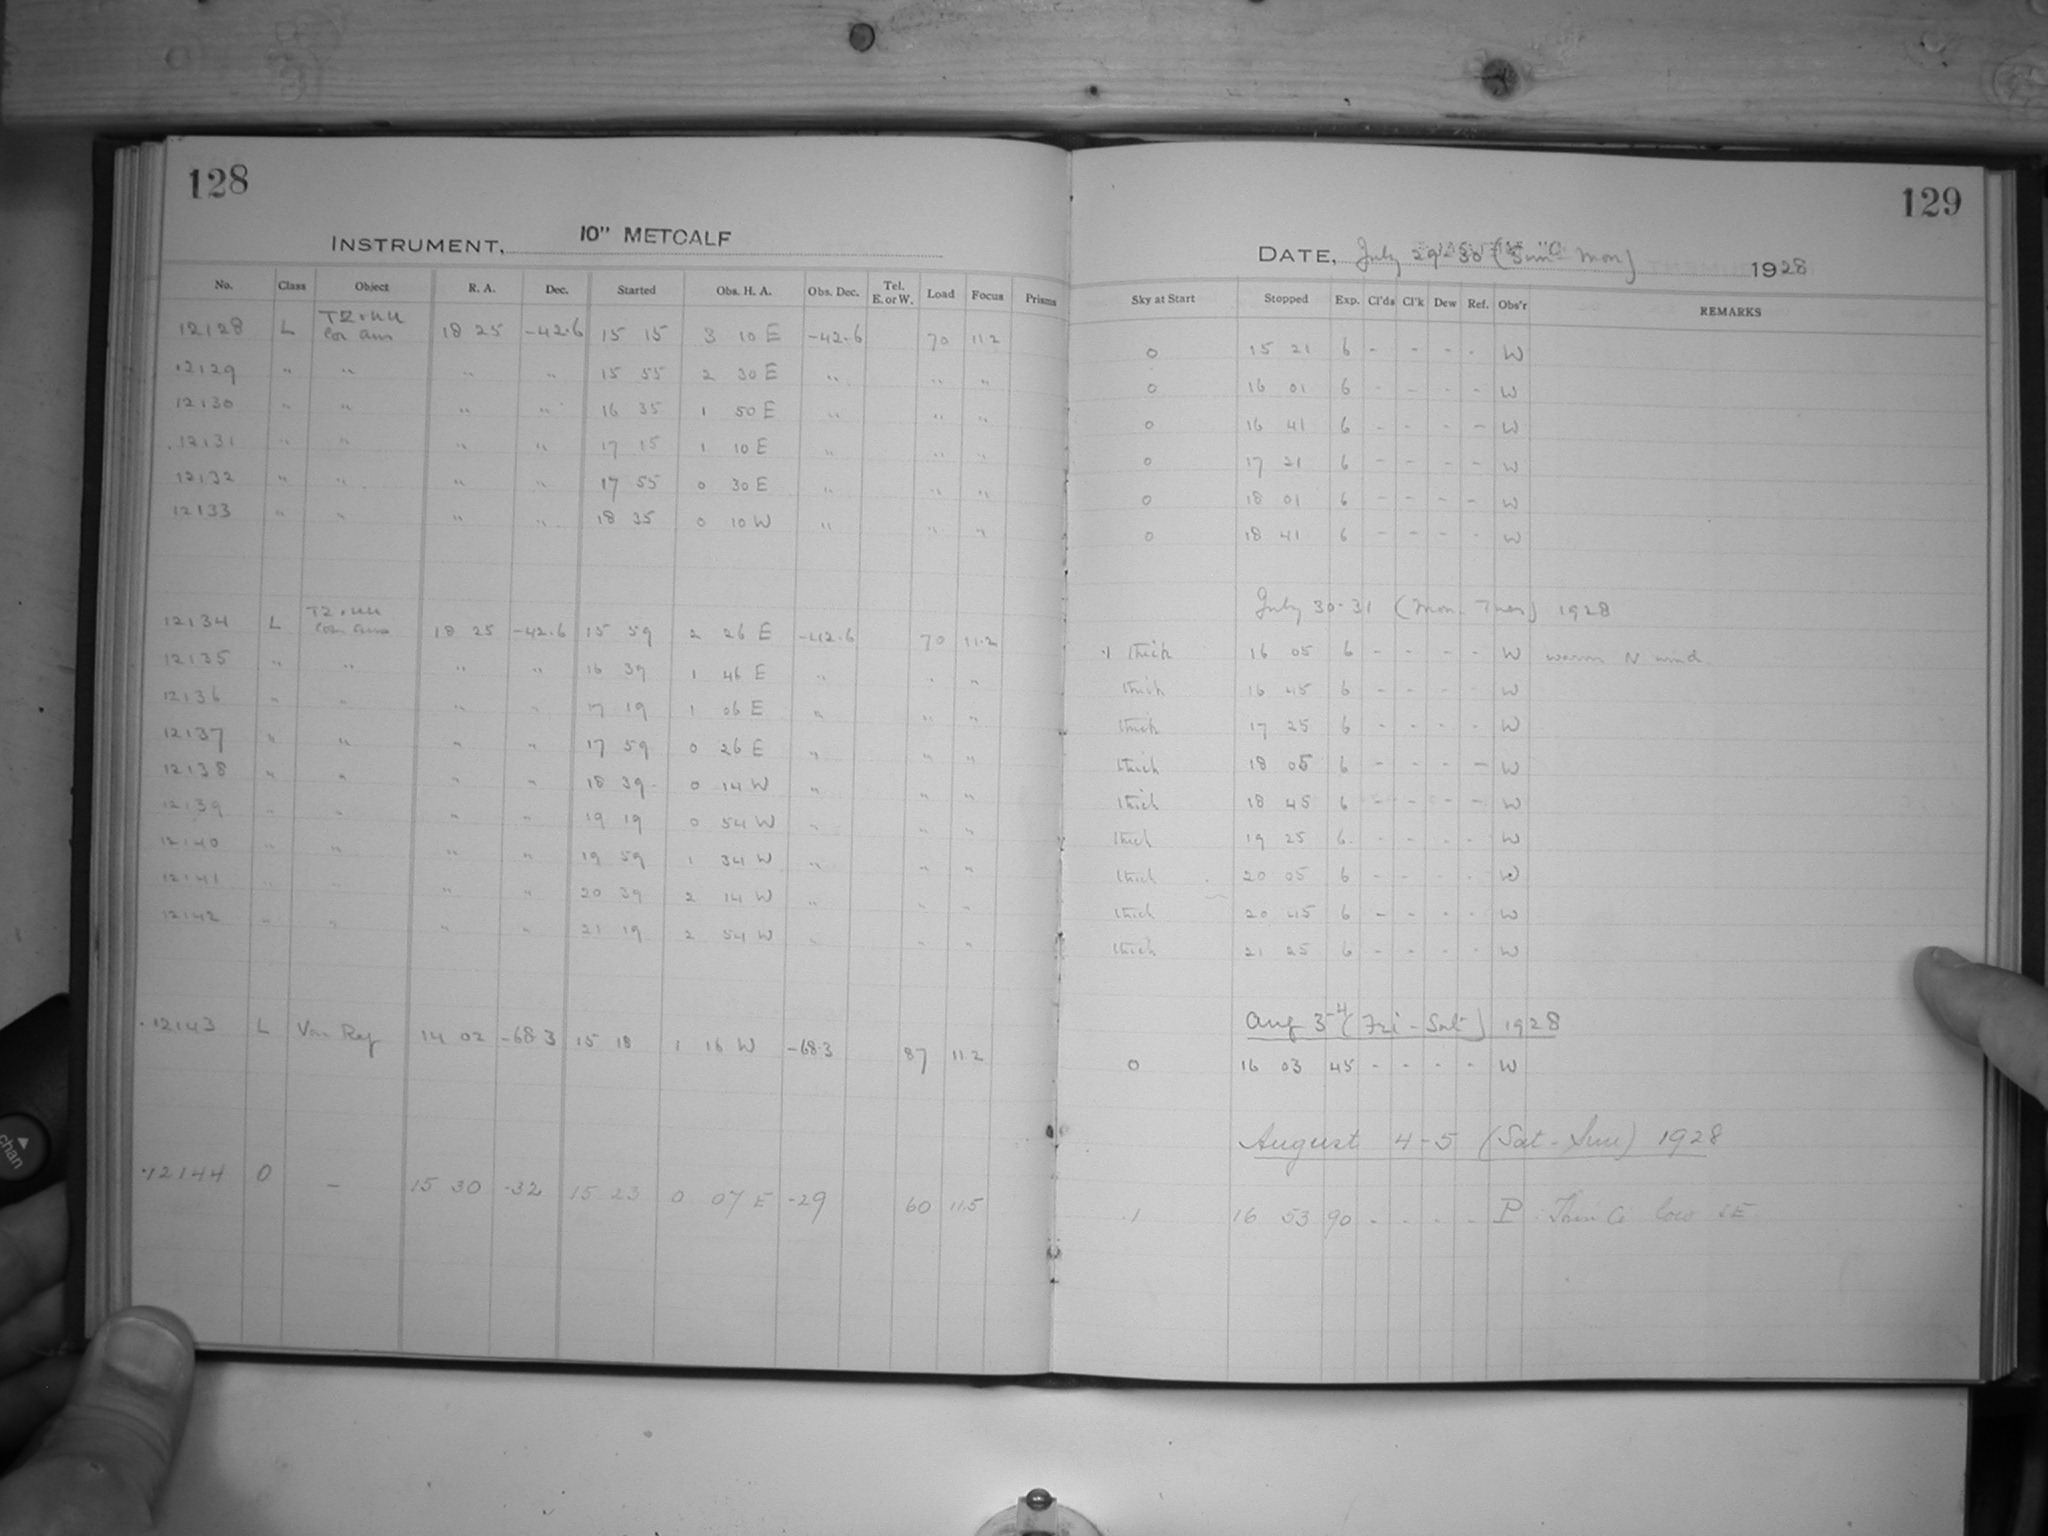 128
INSTRUMENT, 10" METCALF
No. Class Object R. A. Dec. Started Obs. H. A. Obs. Dec. Tel. E. or W. Load Focus Prisms
12128 L Cor Aus 18 25 -42.6 15 15 3 10 E -42.6 70 11.2
12129 " " " " 15 55 2 30 E " " "
12130 " " " " 16 35 1 50 E " " "
12131 " " " " 17 15 1 10 E " " "
12132 " " " " 17 55 0 30 E " " "
12133 " " " " 18 35 0 10 W " " "
12134 L Cor Aus 18 25 -42.6 15 59 2 26 E -42.6 70 11.2
12135 " " " " 16 39 1 46 E " " "
12136 " " " " 17 19 1 06 E " " "
12137 " " " " 17 59 0 26 E " " "
12138 " " " " 18 39 0 14 W " " "
12139 " " " " 19 19 0 54 W " " "
12140 " " " " 19 59 1 34 W " " "
12141 " " " " 20 39 2 14 W " " "
12142 " " " " 21 19 2 54 W " " "
12143 L Var Reg 14 02 -68.3 15 18 1 16 W -68.3 87 11.2
12144 O - 15 30 -32 15 23 0 07 E -29 60 11.5
129
DATE, July 29-30 (Sun-Mon) 1928
Sky at Start Stopped Exp. Cl'ds Cl'k Dew Ref. Obs'r REMARKS
0 15 21 6 - - - - W
0 16 01 6 - - - - W
0 16 41 6 - - - - W
0 17 21 6 - - - - W
0 18 01 6 - - - - W
0 18 41 6 - - - - W
July 30-31 (Mon-Tues) 1928
.1 thick 16 05 6 - - - - W warm N wind
thick 16 45 6 - - - - W
thick 17 25 6 - - - - W
thick 18 05 6 - - - - W
thick 18 45 6 - - - - W
thick 19 25 6 - - - - W
thick 20 05 6 - - - - W
thick 20 45 6 - - - - W
thick 21 25 6 - - - - W
Aug 3-4 (Fri-Sat) 1928
0 16 03 45 - - - - W
August 4-5 (Sat-Sun) 1928
.1 16 53 90 - - - - P Thin Ci low SE
chan